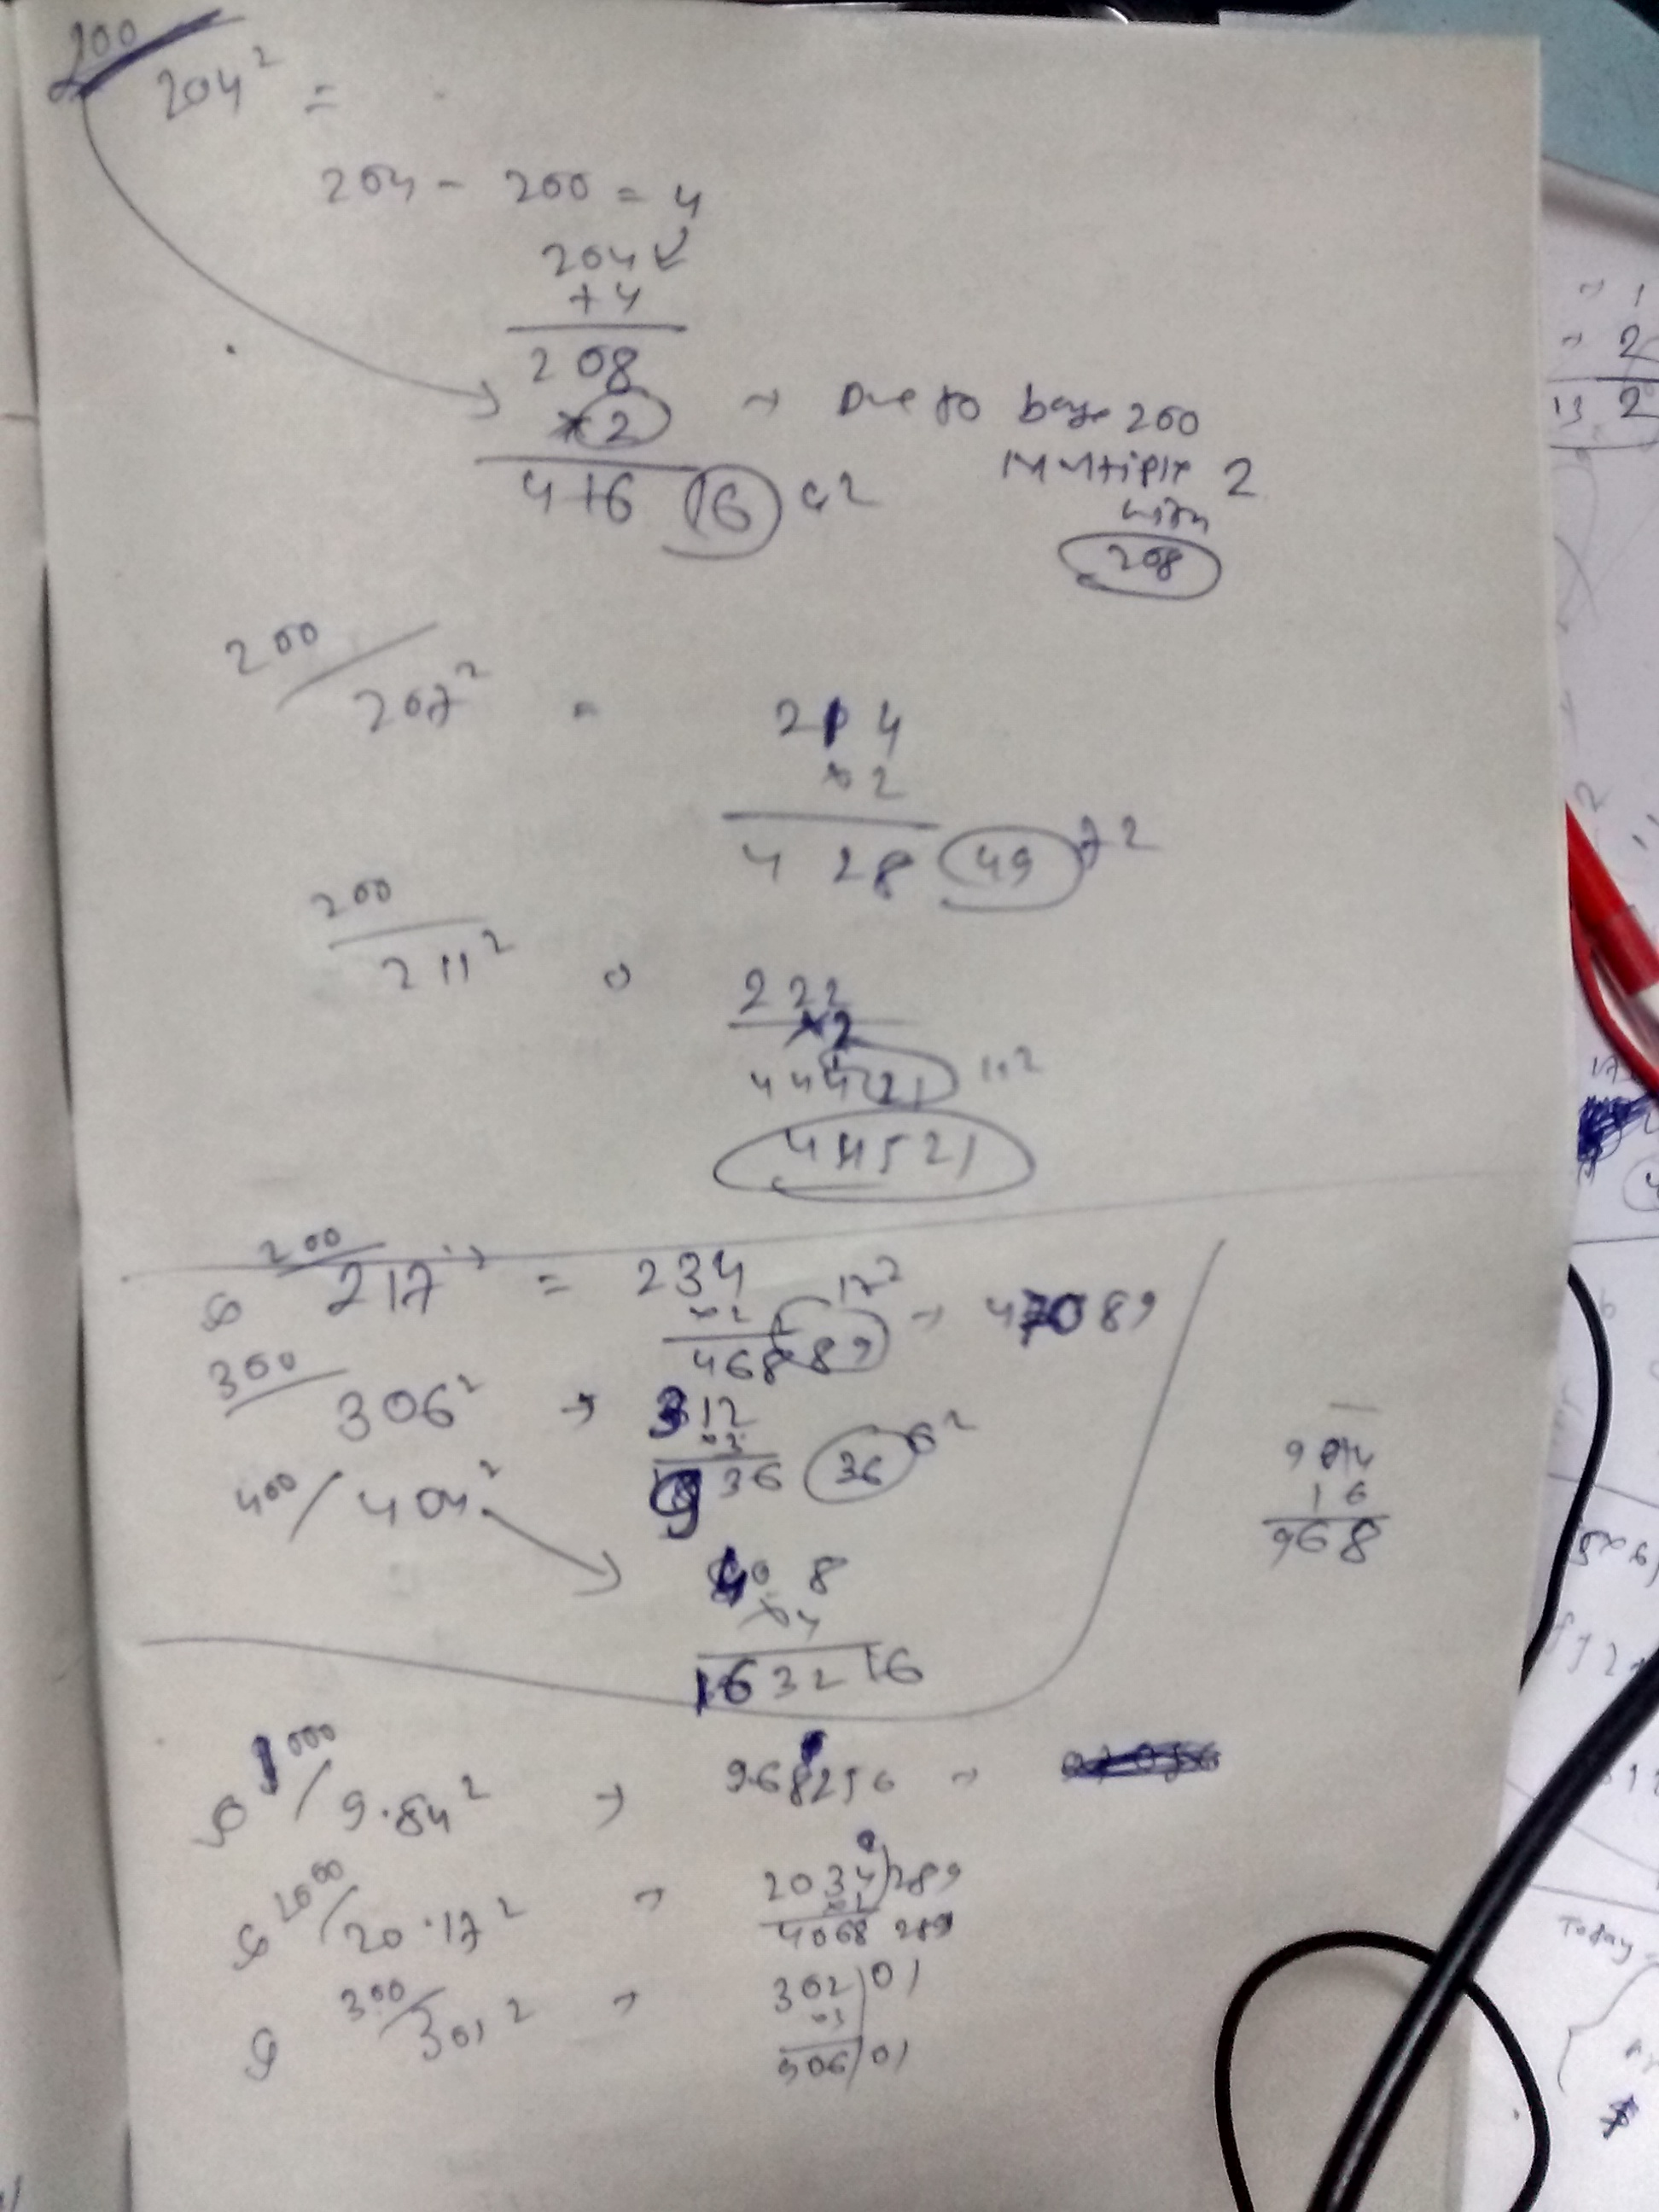 200
204² =
204 - 200 = 4
204
+ 4
208
×2 → Due to base 200
416 16 4²
Multiple 2
with
208
200
207² = 214
×2
428 49 7²
200
211² =
222
×2
444 21 11²
44521
200
217² = 234
×2 17²
468 89 → 47089
300
306² → 312
×3
936 36 6²
400/404²
40 8
×4
1632 16
984
16
968
1000/9.84² → 968256 →
2000/20.17² → 2034/289
×2
4068 289
300
301² → 302/01
×3
906/01
13 2
Today
$